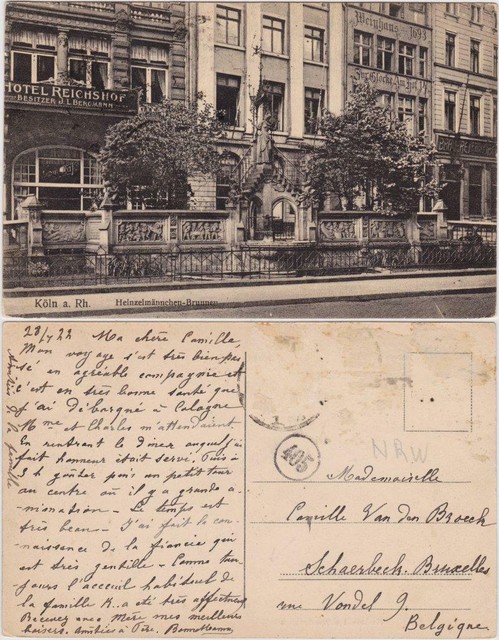 HOTEL REICHSHOF
BESITZER J. L. BERGMANN
Weinhaus 1693
Zur Glocke Am Hof 14
Köln a. Rh. Heinzelmännchen-Brunnen
Ma chère Camille,
Mon voyage s'est très bien pas
sé en agréable compagnie et
c'est en très bonne santé que
j'ai débarqué à Cologne
Mme et Charles m'attendaient
En rentrant le diner auquel j'ai
fait honneur était servi. Puis à
5 h goûter puis un petit tour
au centre où il y a grande a
nimation - Le temps est
très beau - J'ai fait la con
naissance de la fiancée qui
est très gentille - Comme tou
jours l'acceuil habituel de
la famille K. a été très affectueux
Recevez avec Mère mes meilleurs
baisers. Amitiés à Père,
Amitiés à la famille
405
NRW
Mademoiselle
Camille Van den Broeck
Schaerbeck-Bruxelles
rue Vondel 9.
Belgique